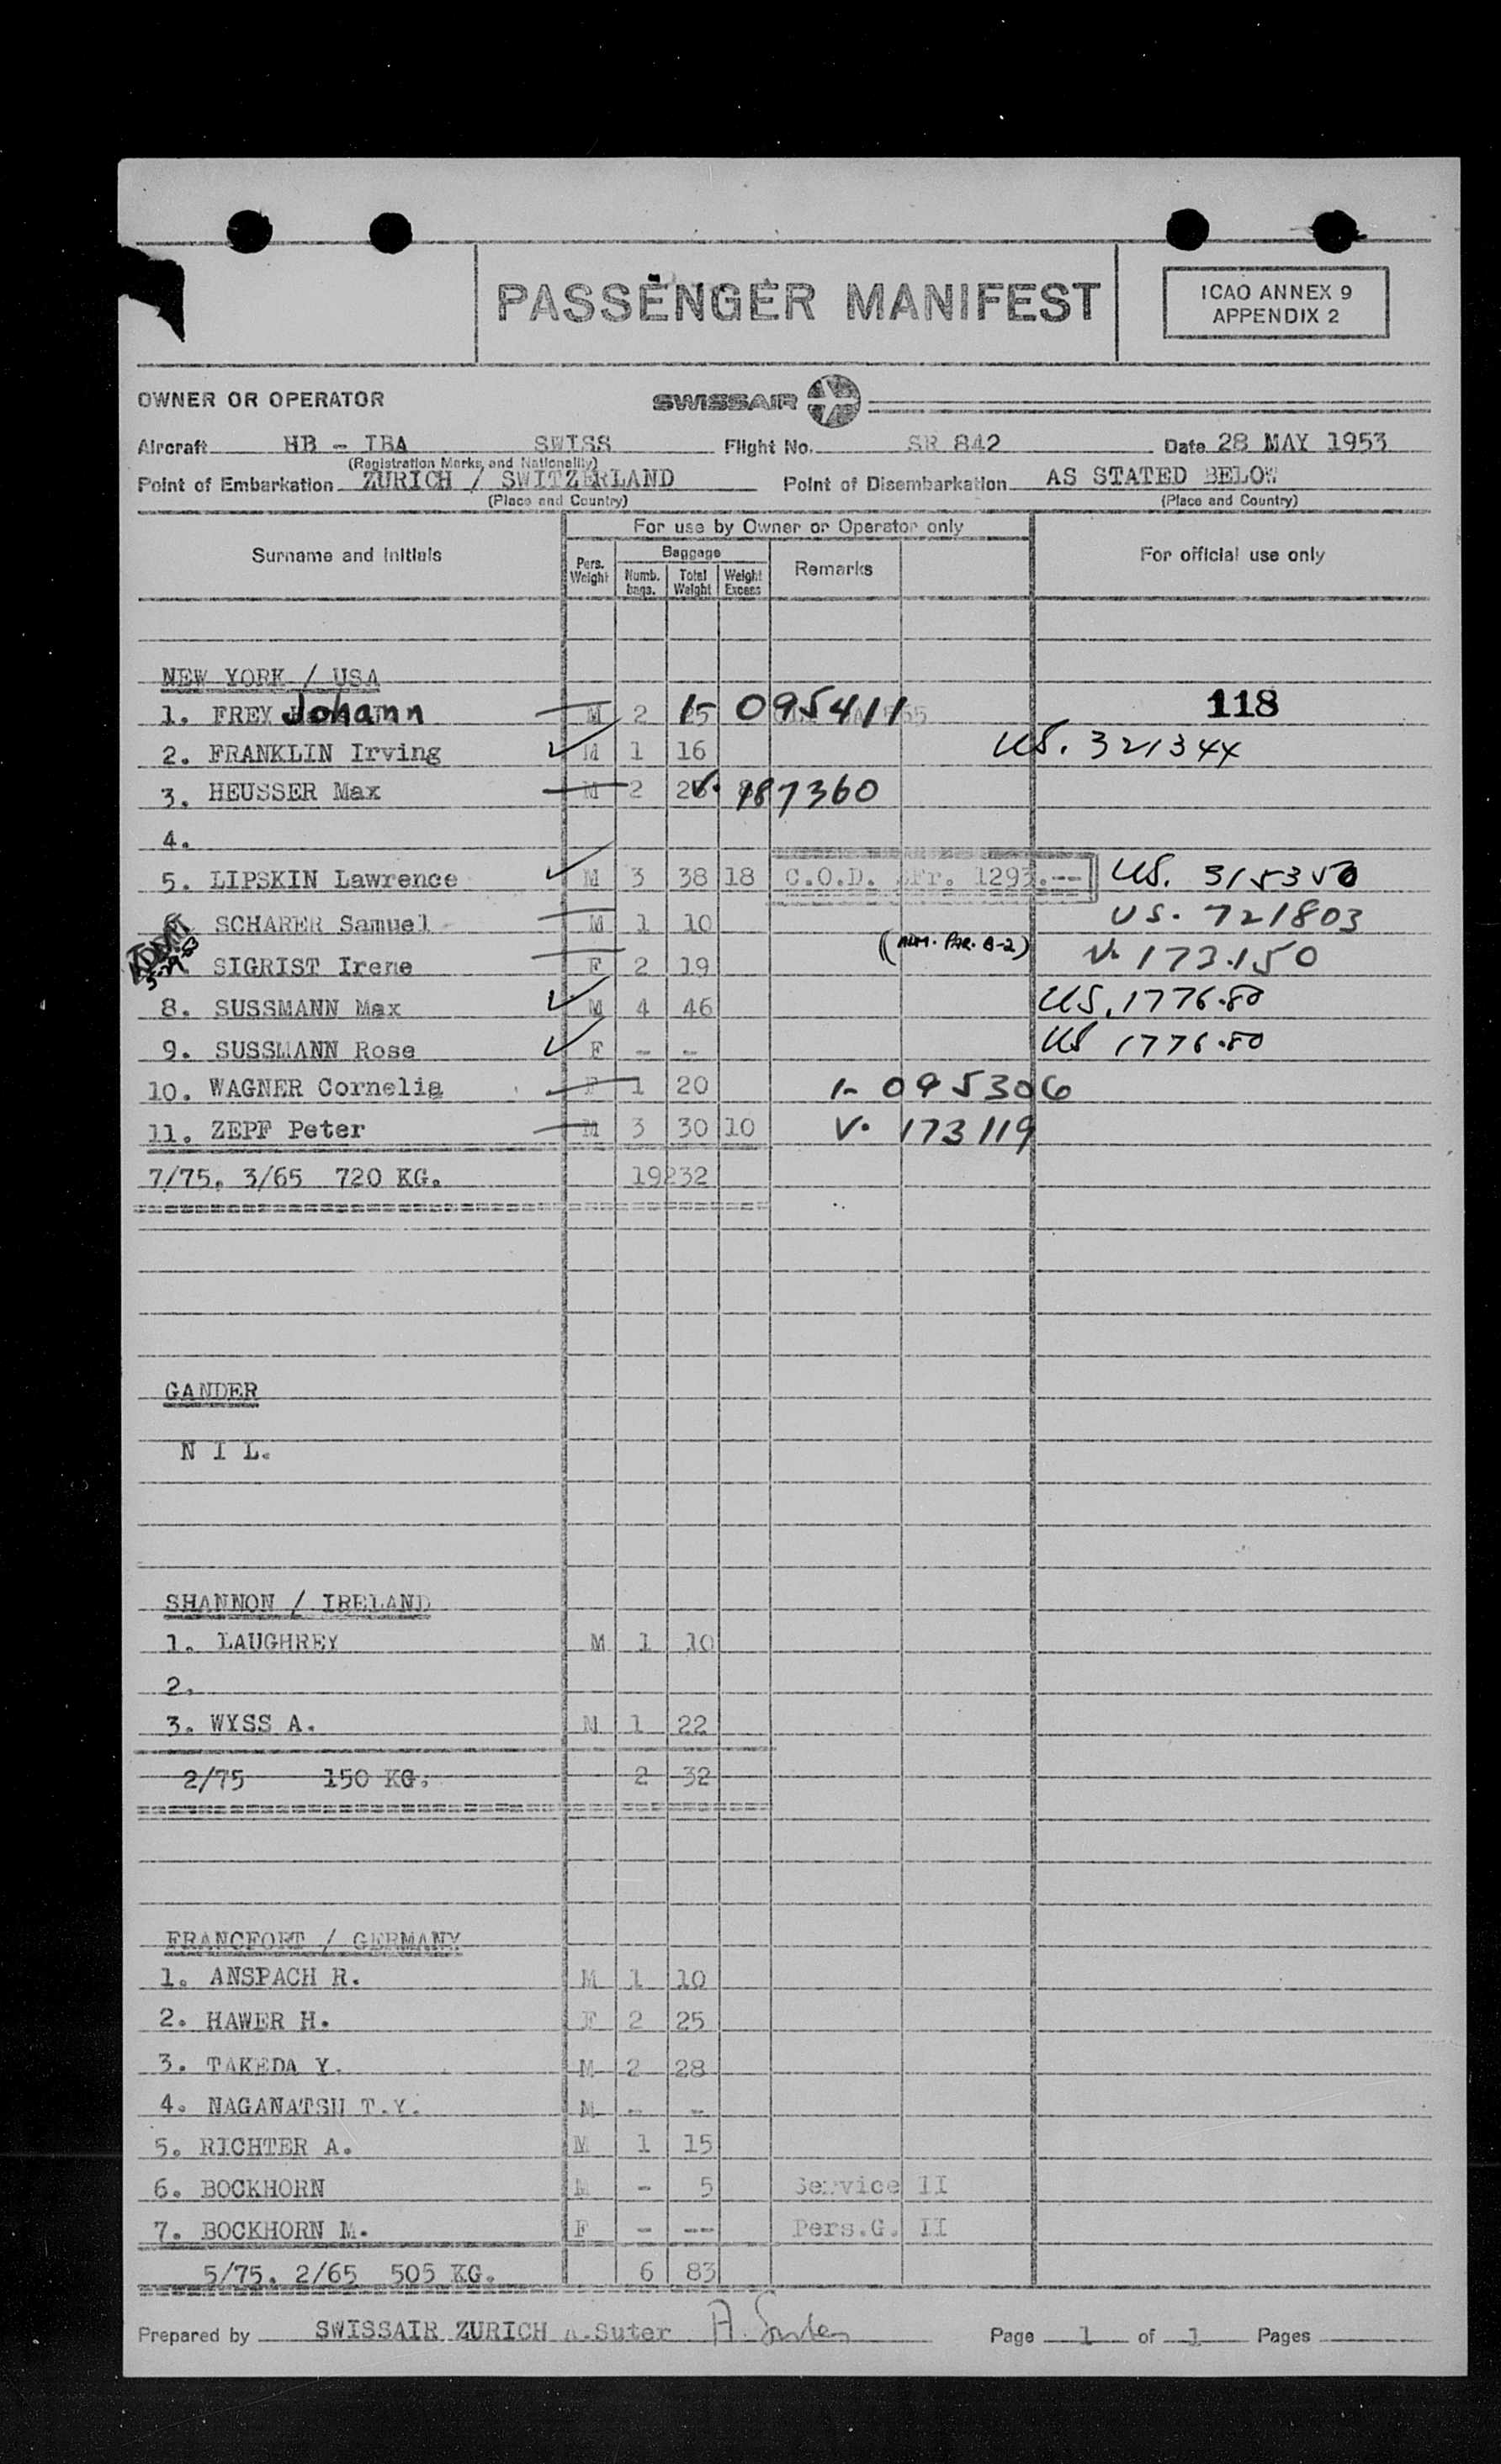 PASSENGER MANIFEST
ICAO ANNEX 9
APPENDIX 2
OWNER OR OPERATOR SWISSAIR
Aircraft HB - IBA SWISS Flight No. SR 842 Date 28 MAY 1953
(Registration Marks and Nationality)
Point of Embarkation ZURICH / SWITZERLAND Point of Disembarkation AS STATED BELOW
(Place and Country) (Place and Country)
For use by Owner or Operator only
Surname and initials Pers. Weight Baggage Numb. bags. Total Weight Weight Excess Remarks For official use only
NEW YORK / USA
1. FREY Johann M 2 I- 095411 118
2. FRANKLIN Irving M 1 16 US. 321344
3. HEUSSER Max M 2 V. 187360
4.
5. LIPSKIN Lawrence M 3 38 18 C.O.D. SFr. 1293.-- US. 315350
SCHARER Samuel M 1 10 US. 721803
ADMIT 5-29-53 SIGRIST Irene F 2 19 (ADM. PAR. B-2) V. 173150
8. SUSSMANN Max M 4 46 US. 177680
9. SUSSMANN Rose F - - US 177680
10. WAGNER Cornelia F 1 20 I- 095306
11. ZEPF Peter M 3 30 10 V. 173119
7/75, 3/65 720 KG. 19232
GANDER
N I L.
SHANNON / IRELAND
1. LAUGHREY M 1 10
2.
3. WYSS A. M 1 22
2/75 150 KG. 2 32
FRANCFORT / GERMANY
1. ANSPACH R. M 1 10
2. HAWER H. F 2 25
3. TAKEDA Y. M 2 28
4. NAGANATSU T.Y. M - -
5. RICHTER A. M 1 15
6. BOCKHORN M - 5 Service II
7. BOCKHORN M. F - -- Pers.G. II
5/75, 2/65 505 KG. 6 83
Prepared by SWISSAIR ZURICH A.Suter A. Suter Page 1 of 1 Pages